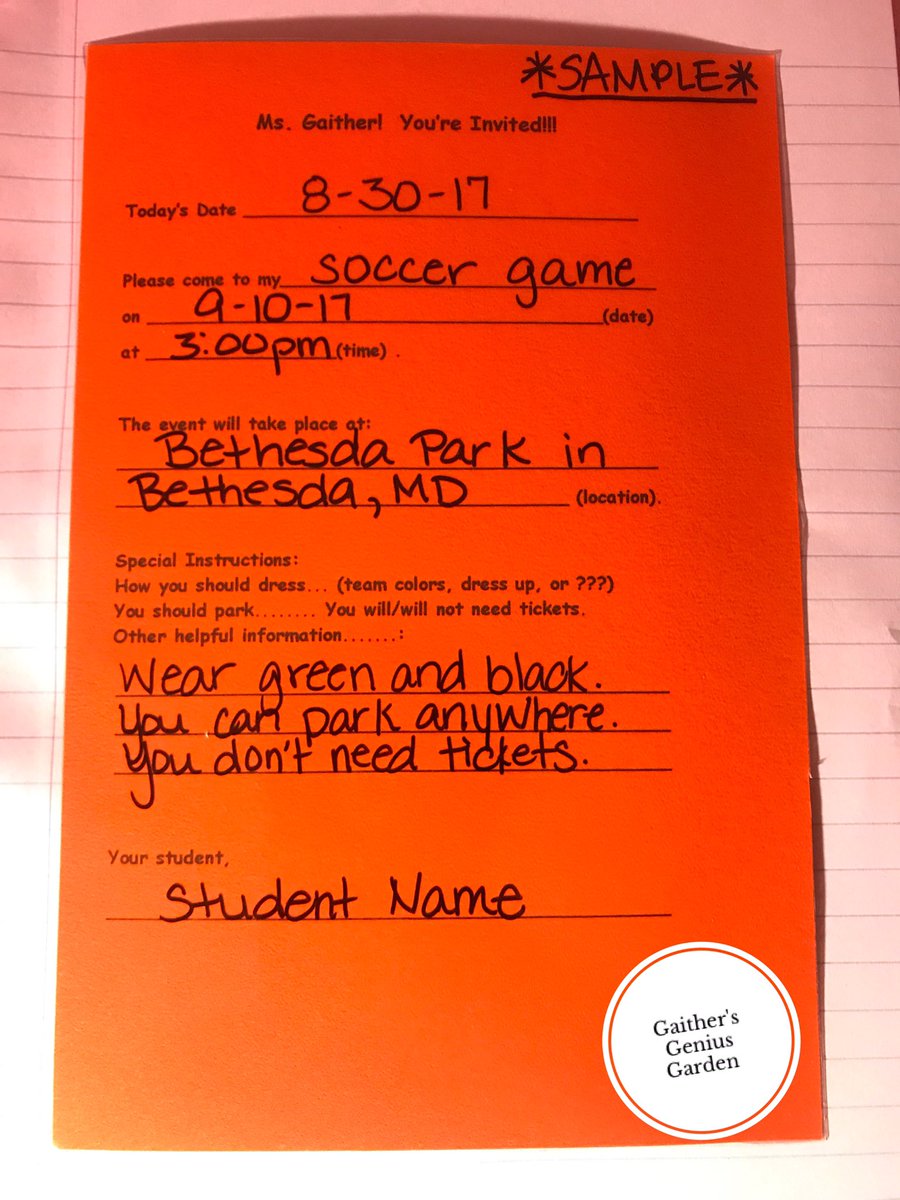 *SAMPLE*
Ms. Gaither! You're Invited!!!
Today's Date 8-30-17
Please come to my soccer game
on 9-10-17 (date)
at 3:00pm (time) .
The event will take place at:
Bethesda Park in
Bethesda, MD (location).
Special Instructions:
How you should dress... (team colors, dress up, or ???)
You should park........ You will/will not need tickets.
Other helpful information.......:
Wear green and black.
You can park anywhere.
You don't need tickets.
Your student,
Student Name
Gaither's
Genius
Garden